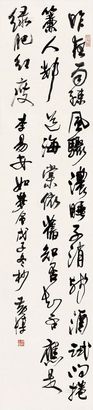 昨夜雨疏風驟濃睡不消殘酒試問捲
簾人卻道海棠依舊知否知否應是
綠肥紅瘦 李易安如夢令戊子冬